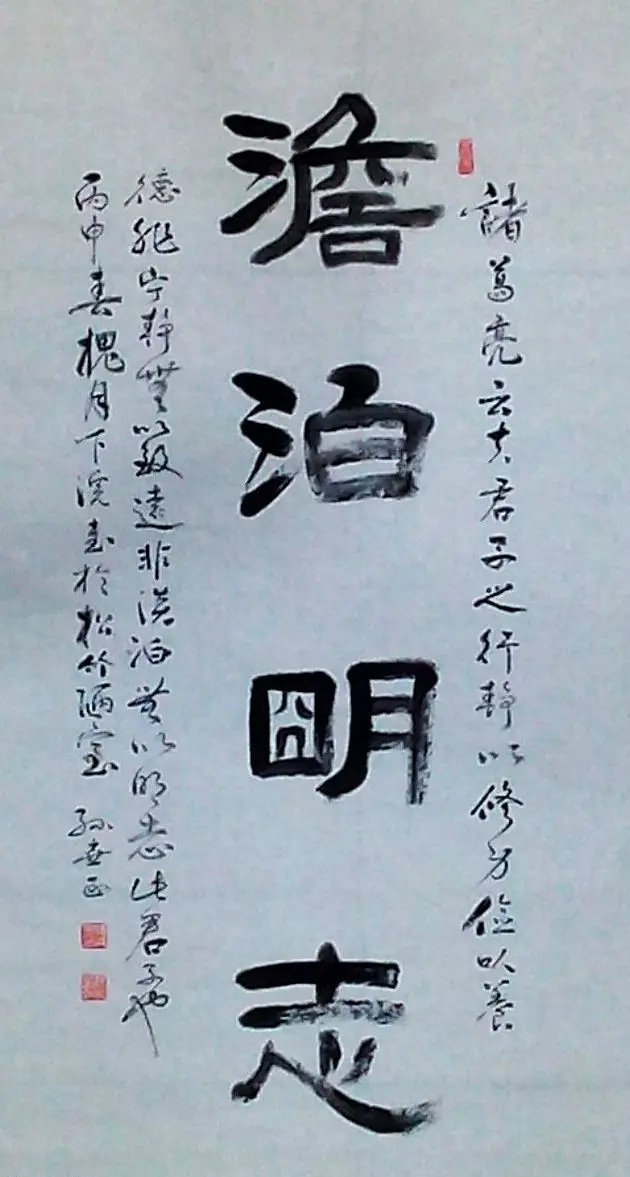 諸葛亮云夫君子之行静以修身俭以養
澹泊明志
德非宁静無以致遠非淡泊無以明志此君子也
丙申春槐月下浣書於松竹陋室 孙世正